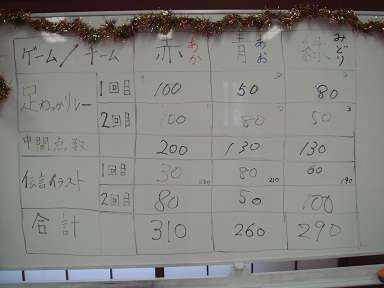 ゲーム/チーム 赤 あか 青 あお 緑 みどり
足わっかリレー 1回目 100 50 80
2回目 100 80 50
中間点数 200 130 130
伝言イラスト 1回目 30 230 80 210 60 190
2回目 80 50 100
合計 310 260 290